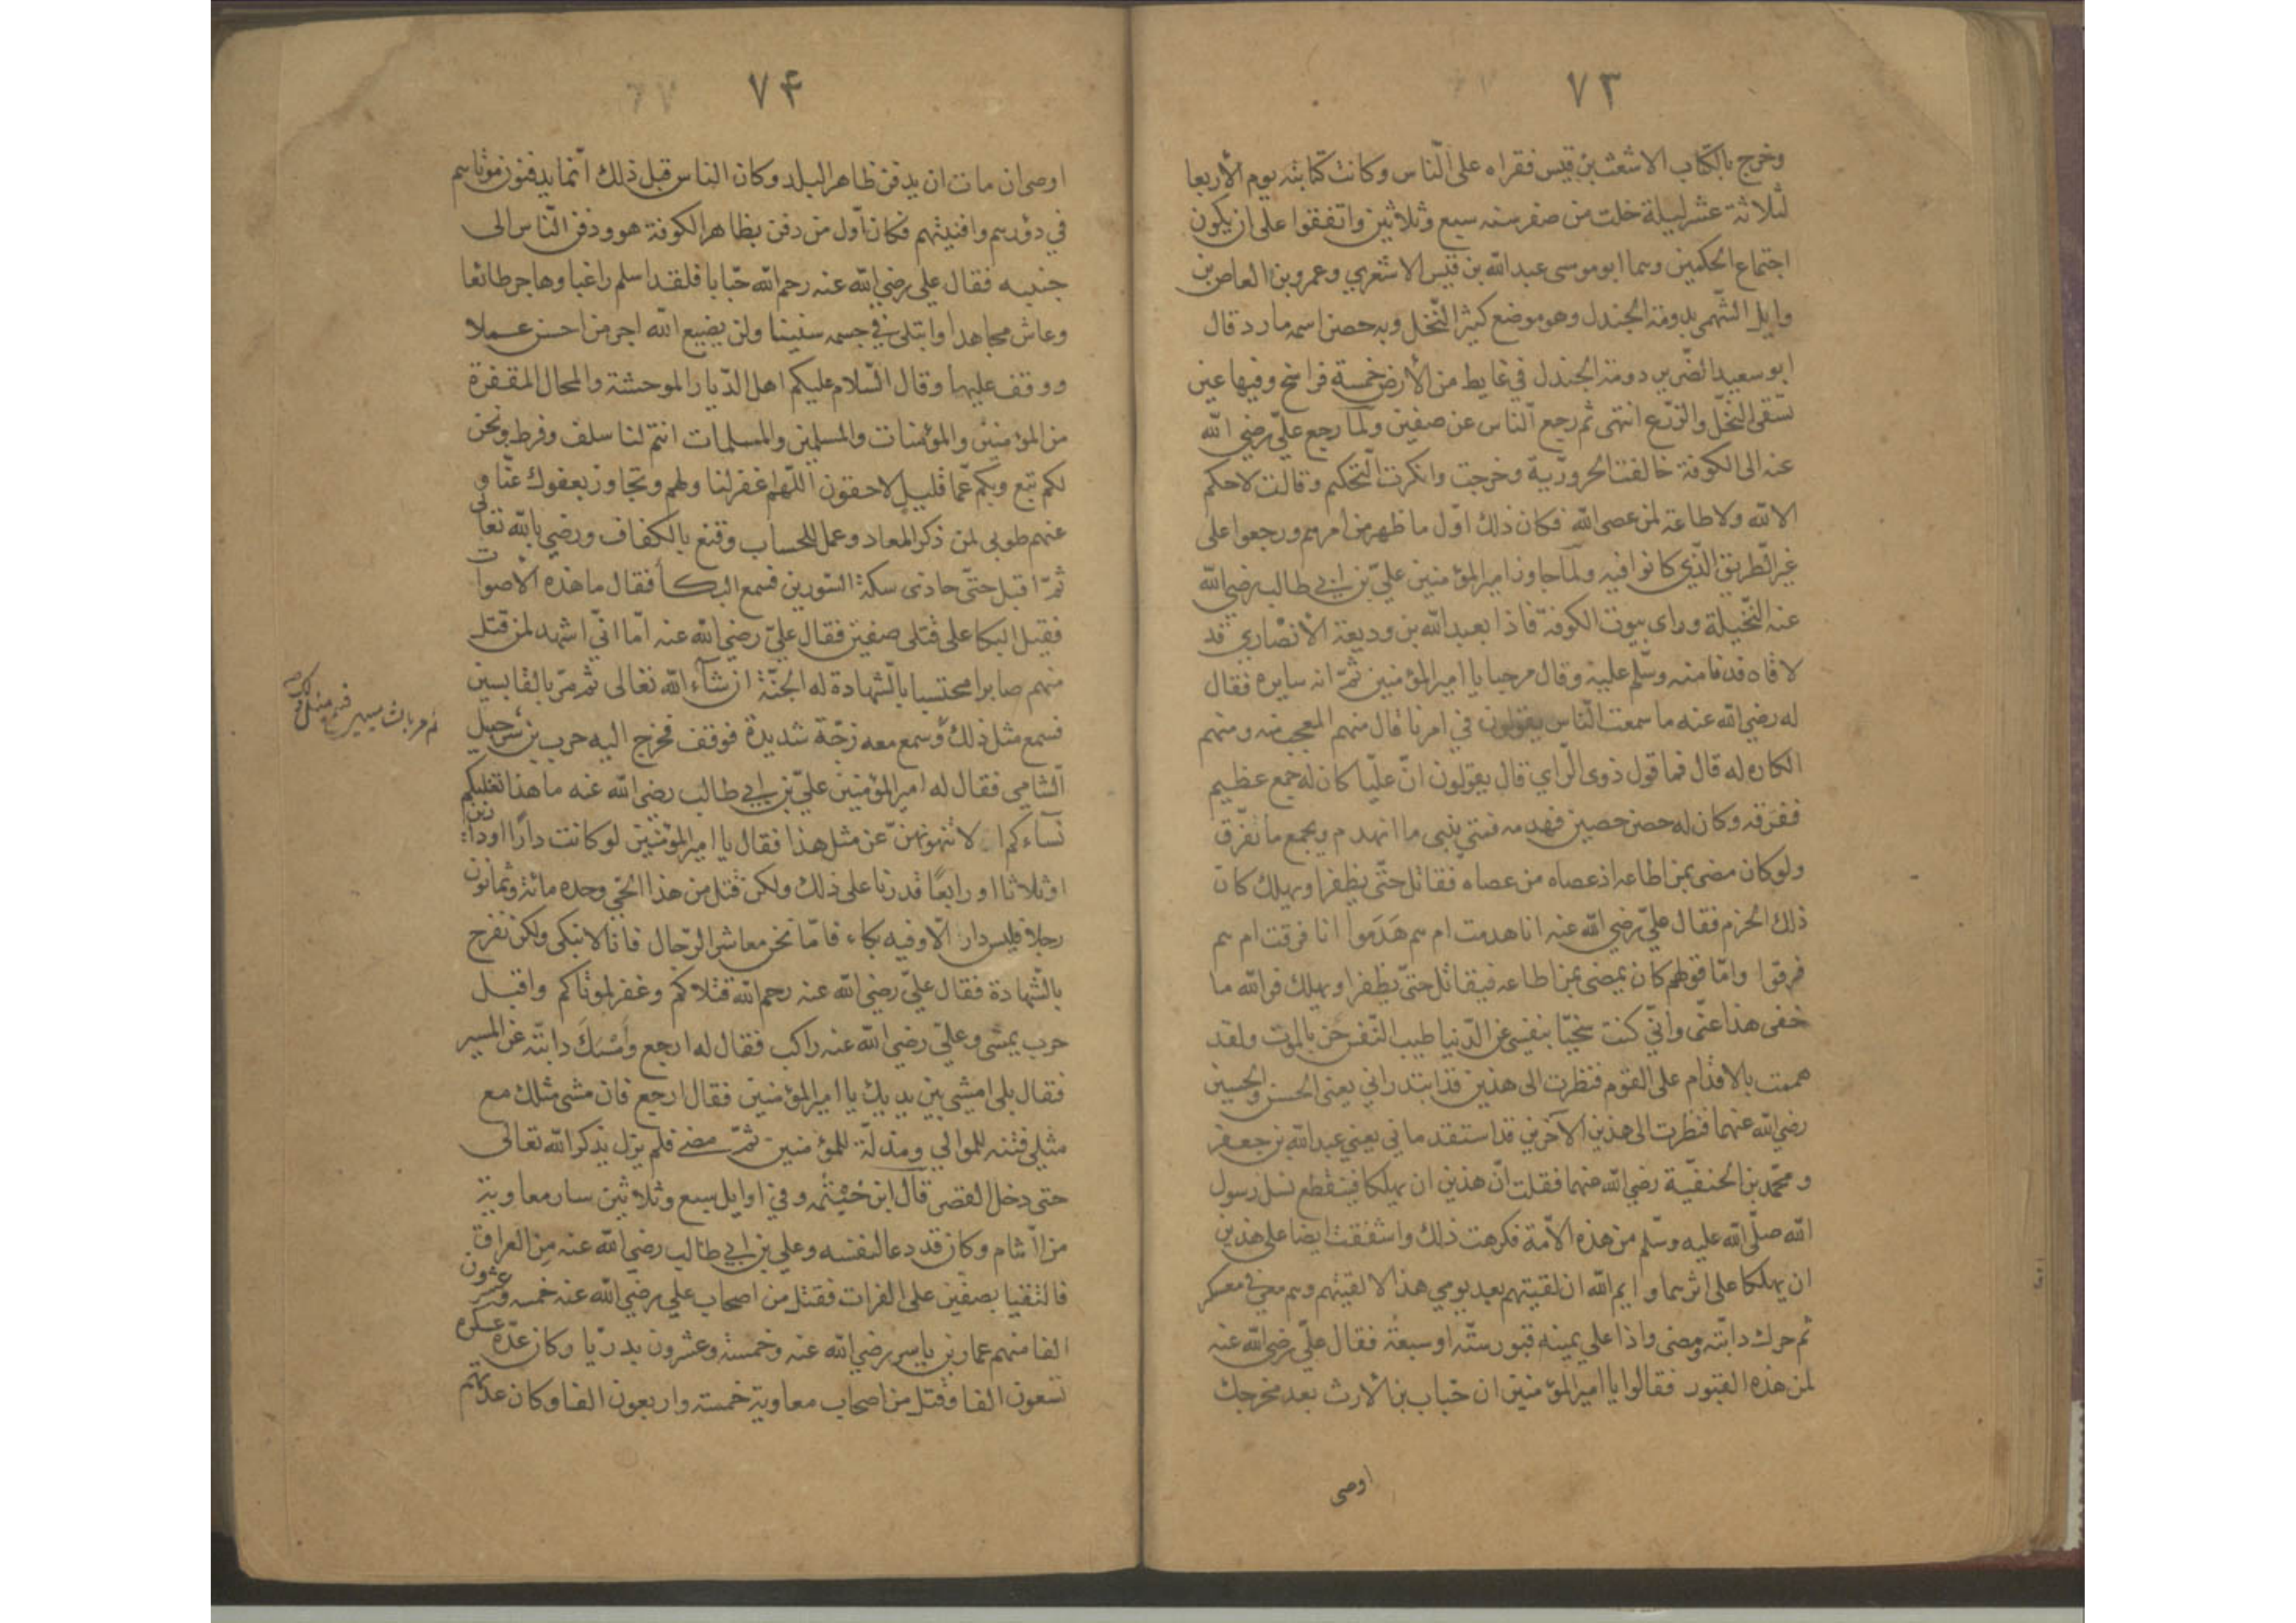 ٧٣
وخرج بالكتاب الاشعث بن قيس فقراه على النّاس وكانت كتابته يوم الأربعا
لثلاثة عشر ليلة خلت من صفر سنه سبع وثلاثين واتفقوا على ان يكون
اجتماع الحكمين وهما ابو موسى عبد الله بن قيس الاشعري وعمرو بن العاص بن
وايل السّهمى بدومة الجندل وهو موضع كثير النّخل وبه حصن اسمه مارد قال
ابو سعيد الضّرير دومة الجندل في غايط من الأرض خمسة فراسخ وفيها عين
تسقى النخل والزرع انتهى ثم رجع النّاس عن صفين ولمّا رجع عليّ رضي الله
عنه الى الكوفة خالفت الحروريّة وخرجت وانكرت التّحكيم وقالت لا حكم
الا لله ولا طاعة لمن عصى الله فكان ذلك اوّل ما ظهر من امرهم ورجعوا على
غير الطّريق الّذي كانوا فيه ولمّا جاوز امير المؤمنين عليّ بن ابي طالب رضي الله
عنه النّخيلة وراى بيوت الكوفة فاذا بعبد الله بن وديعة الأنصاري قد
لاقاه فدنا منه وسلّم عليه وقال مرحبا يا امير المؤمنين ثمّ انه سايره فقال
له رضي الله عنه ما سمعت النّاس يقولون في امرنا قال منهم المعجب منه ومنهم
الكاره له قال فما قول ذوى الرّاي قال يقولون انّ عليّا كان له جمع عظيم
ففرّقه وكان له حصن حصين فهدمه فمتى يبنى ما انهدم ويجمع ما تفرّق
ولو كان مضى بمن اطاعه اذ عصاه من عصاه فقاتل حتّى يظفر او يهلك كان
ذلك الحزم فقال عليّ رضي الله عنه انا هدمت ام هم هَدَموا انا فرقت ام هم
فرقوا وامّا قولهم كان يمضى بمن اطاعه فيقاتل حتّى يظفر او يهلك فوالله ما
خفى هذا عنّى وانّي كنت سخيّا بنفسي عن الدّنيا طيب النّفس بالموت ولقد
هممت بالاقدام على القوم فنظرت الى هذين قد ابتدراني يعنى الحسن والحسين
رضي الله عنهما فنظرت الى هذين الآخرين قد استقدماني يعني عبد الله بن جعفر
ومحمّد بن الحنفيّة رضي الله عنهما فقلت انّ هذين ان يهلكا فينقطع نسل رسول
الله صلّى الله عليه وسلّم من هذه الأمّة فكرهت ذلك واشفقت ايضا على هذين
ان يهلكا على اثرهما وايم الله ان لقيتهم بعد يومي هذا لا لقيتهم وهم معي في معسكر
ثم حرك دابّته ومضى واذا على يمينه قبور ستّه او سبعة فقال عليّ رضي الله عنه
لمن هذه القبور فقالوا يا امير المؤمنين ان خباب بن الأرث بعد مخرجك
اوصى
٧۴
اوصى ان مات ان يدفن ظاهر البلد وكان الناس قبل ذلك انّما يدفنون موتاهم
في دورهم وافنيتهم فكان اوّل من دفن بظاهر الكوفة هو ودفن النّاس الى
جنبه فقال علي رضي الله عنه رحم الله خبّابا فلقد اسلم راغبا وهاجر طائعا
وعاش مجاهدا وابتلى في جسمه سنينا ولن يضيع الله اجر من احسن عملا
ووقف عليها وقال السّلام عليكم اهل الدّيار الموحشة والمحال المقفرة
من المؤمنين والمؤمنات والمسلمين والمسلمات انتم لنا سلف وفرط ونحن
لكم تبع وبكم عمّا قليل لاحقون اللّهم اغفر لنا ولهم وتجاوز بعفوك عنّا و
عنهم طوبى لمن ذكر المعاد وعمل للحساب وقنع بالكفاف ورضي بالله تعالى
ثمّ اقبل حتّى حاذى سكة الثورين فسمع البكأ فقال ما هذه الأصوات
فقيل البكا على قتلى صفين فقال عليّ رضي الله عنه امّا انّي اشهد لمن قتل
منهم صابرا محتسبا بالشهادة له الجنّة ان شآء الله تعالى ثم مرّ بالفابسين
فسمع مثل ذلك وسمع معه رجّة شديدة فوقف فخرج اليه حرب بن شرحبيل
الشامي فقال له امير المؤمنين عليّ بن ابي طالب رضي الله عنه ما هذا تغلبكم
نسآءكم الا تنهونهنّ عن مثل هذا فقال يا امير المؤمنين لو كانت دارًا او دارين
او ثلاثا او رابعًا قدرنا على ذلك ولكن قتل من هذا الحّي وحده مائة وثمانون
رجلا فليس دار الّا وفيه بكاء فامّا نحن معاشر الرّجال فانا لا نبكى ولكن نفرح
بالشّهادة فقال عليّ رضي الله عنه رحم الله قتلاكم وغفر لموتاكم واقبل
حرب يمشى وعليّ رضي الله عنه راكب فقال له ارجع وأمْسَكَ دابّته عن المسير
فقال بلى امشي بين يديك يا امير المؤمنين فقال ارجع فان مشى مثلك مع
مثلي فتنه للموالي ومذلّة للمؤمنين ثمّ مضى فلم يزل يذكر الله تعالى
حتى دخل القصر قال ابن خيثمه وفي اوايل سبع وثلاثين سار معاوية
من الشام وكان قد دعا لنفسه وعلي بن ابي طالب رضي الله عنه من العراق
فالتقيا بصفين على الفرات فقتل من اصحاب علي رضي الله عنه خمسه وعشرون
الفا منهم عمار بن ياسر رضي الله عنه وخمسة وعشرون بدريّا وكان عدّة عسكره
تسعون الفا وقتل من اصحاب معاوية خمسة واربعون الفا وكان عدّتهم